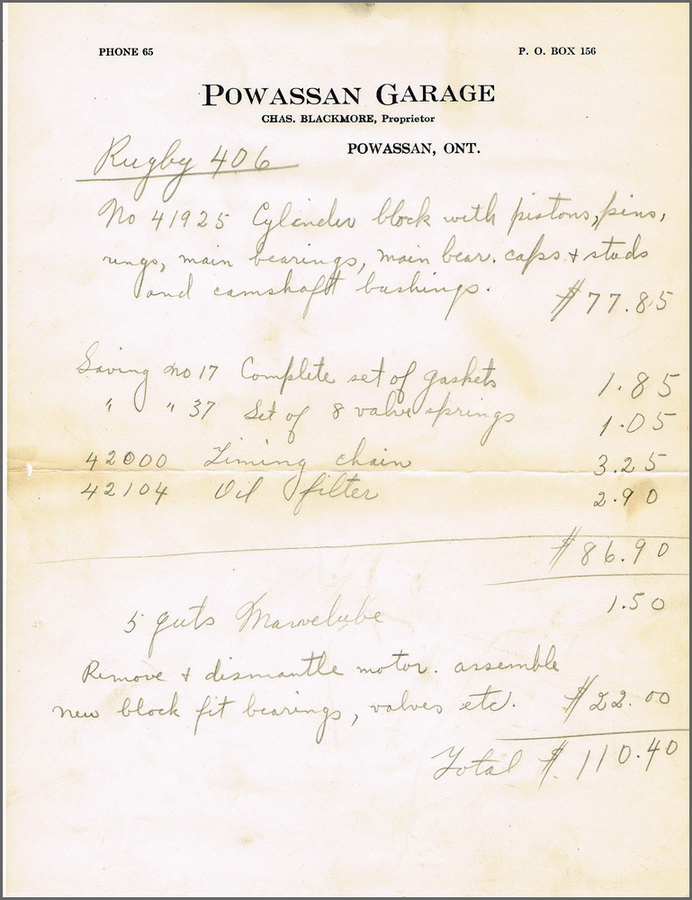 PHONE 65
P. O. BOX 156
POWASSAN GARAGE
CHAS. BLACKMORE, Proprietor
POWASSAN, ONT.
Rugby 406
No 41925 Cylinder block with pistons, pins,
rings, main bearings, main bear. caps & studs
and camshaft bushings. $77.85
Saving No 17 Complete set of gaskets 1.85
" " 37 Set of 8 valve springs 1.05
42000 Timing chain 3.25
42104 Oil filter 2.90
$86.90
5 quts Marvelube 1.50
Remove & dismantle motor. assemble
new block fit bearings, valves etc. $22.00
Total $110.40